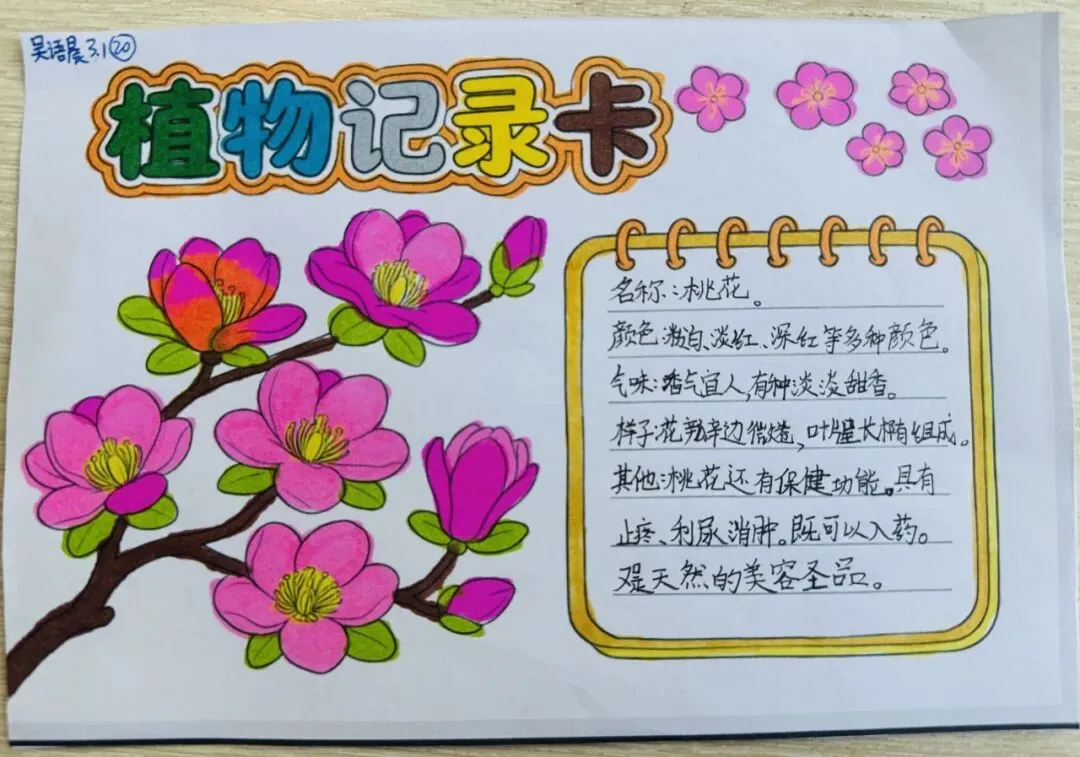 吴语晨 3.1 ⑳
植物记录卡
名称:桃花。
颜色:粉白、淡红、深红等多种颜色。
气味:香气宜人,有种淡淡甜香。
样子:花瓣边微卷,叶 长椭 组成。
其他:桃花还有保健功能。具有
止疼、利尿消肿。既可以入药。
又是天然的美容圣品。